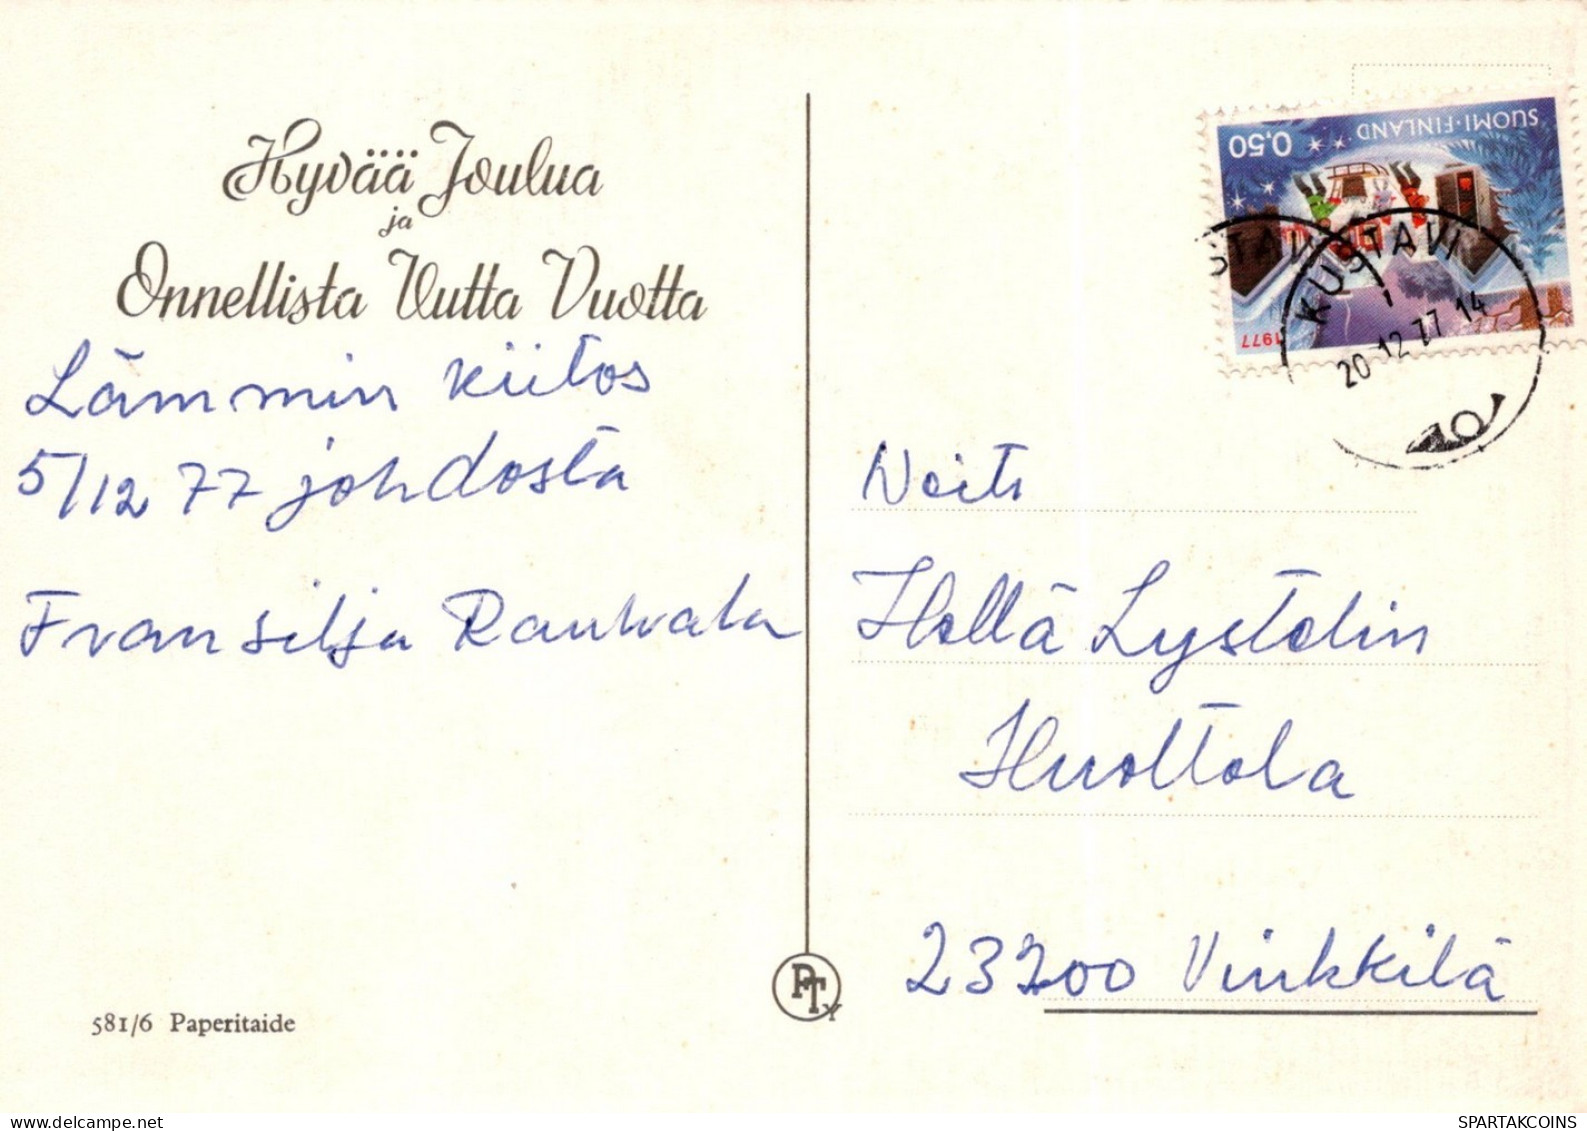 Hyvää Joulua
ja
Onnellista Uutta Vuotta
Lämmin kiitos
5/12 77 johdosta
Fransilja Rauhala
581/6 Paperitaide
PTY
SUOMI·FINLAND
0,50
1977
STAVI
KUSTAVI
1
20.12.77 14
Neiti
Hellä Lystelin
Huottola
23200 Vinkkilä
delcampe.net
SPARTAKCOINS